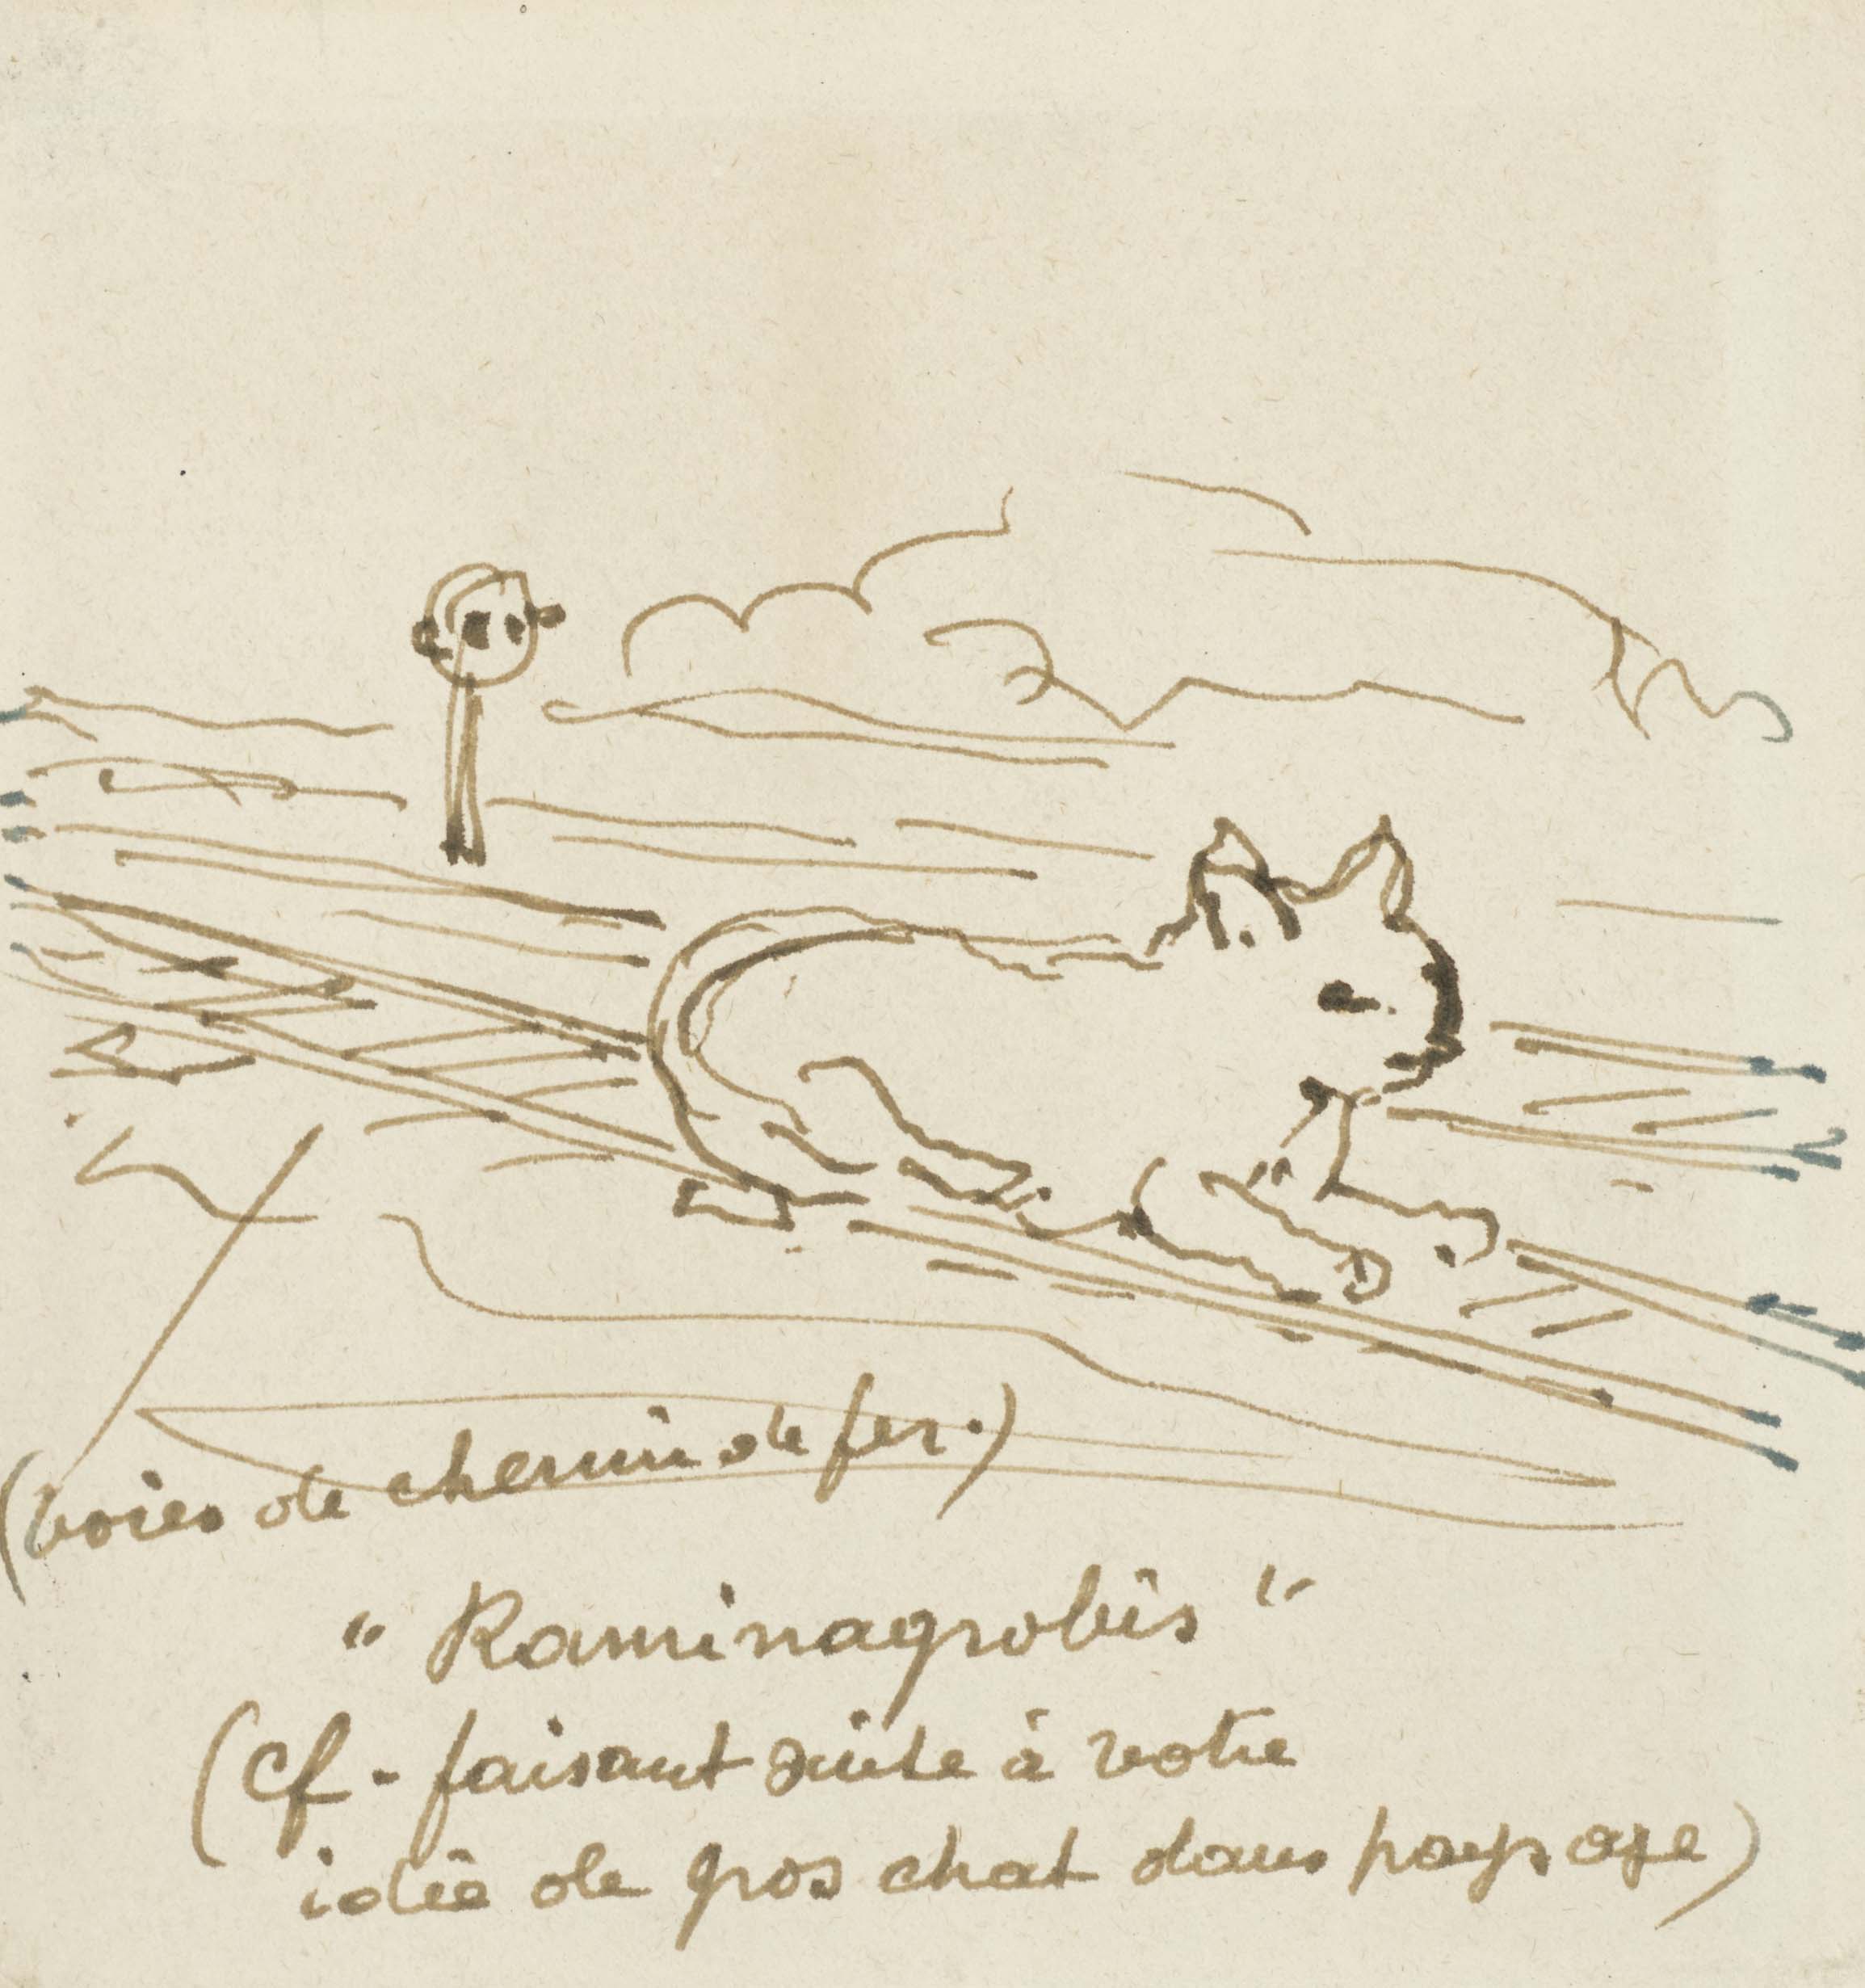 (voies de chemin de fer.)
"Raminagrobis"
(cf - faisant suite à votre
idée de gros chat dans paysage)